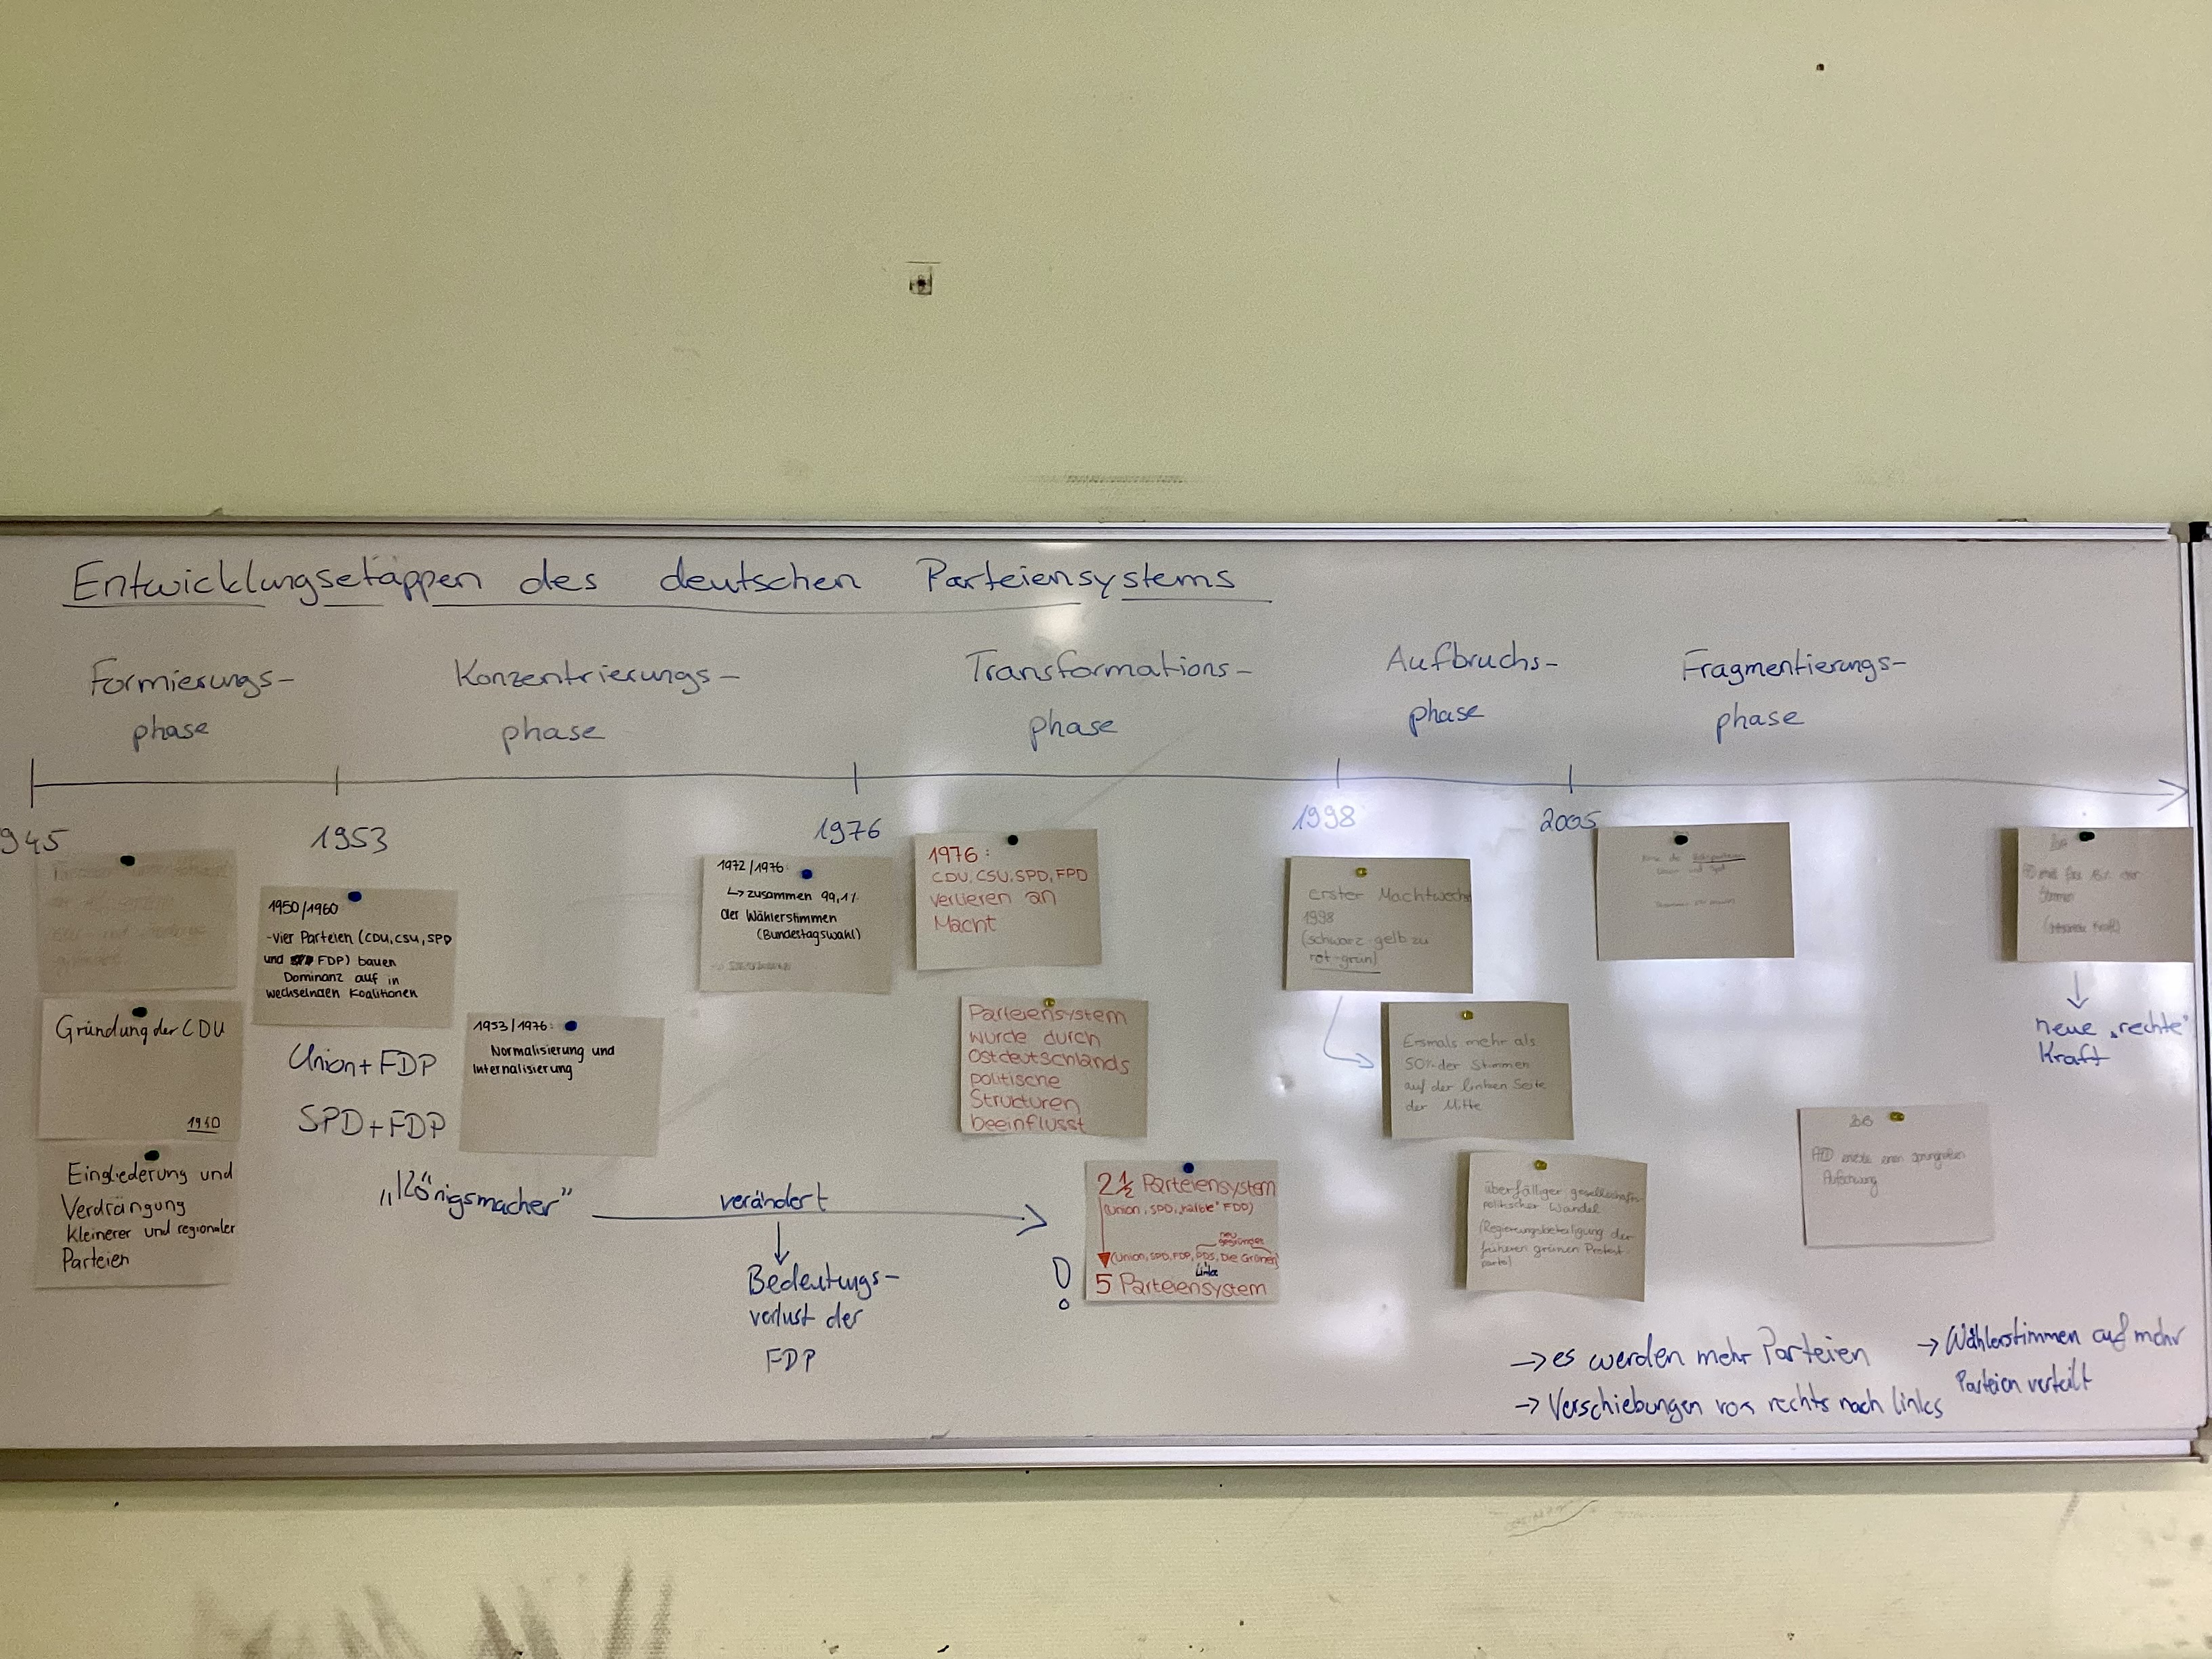 Entwicklungsetappen des deutschen Parteiensystems
Formierungs-
phase
Konzentrierungs-
phase
Transformations-
phase
Aufbruchs-
phase
Fragmentierungs-
phase
945
1953
1976
1998
2005
Gründung der CDU
Eingliederung und
Verdrängung
kleinerer und regionaler
Parteien
1950/1960
-vier Parteien (CDU, CSU, SPD
und FDP) bauen
Dominanz auf in
wechselnden Koalitionen
Union+FDP
SPD+FDP
„Königsmacher"
1953/1976:
Normalisierung und
Internalisierung
verändert
Bedeutungs-
verlust der
FDP
1972/1976:
↳ zusammen 99,1%
der Wählerstimmen
(Bundestagswahl)
1976:
CDU, CSU, SPD, FPD
verlieren an
Macht
Parteiensystem
wurde durch
Ostdeutschlands
politische
Strukturen
beeinflusst
!
2½ Parteiensystem
(Union, SPD, „halbe" FDP)
neu
gegründet
(Union, SPD, FDP, PDS, Die Grünen)
Linke
5 Parteiensystem
erster Machtwechs
1998
(schwarz-gelb zu
rot-grün)
Ersmals mehr als
50% der Stimmen
auf der linken Seite
der Mitte
überfälliger gesellschafts-
politischer Wandel
(Regierungsbeteiligung der
früheren grünen Protest-
partei)
AfD einen
Aufschwung
Stimmen
→ neue „rechte"
Kraft
→ es werden mehr Parteien
→ Verschiebungen von rechts nach links
→ Wählerstimmen auf mehr
Parteien verteilt